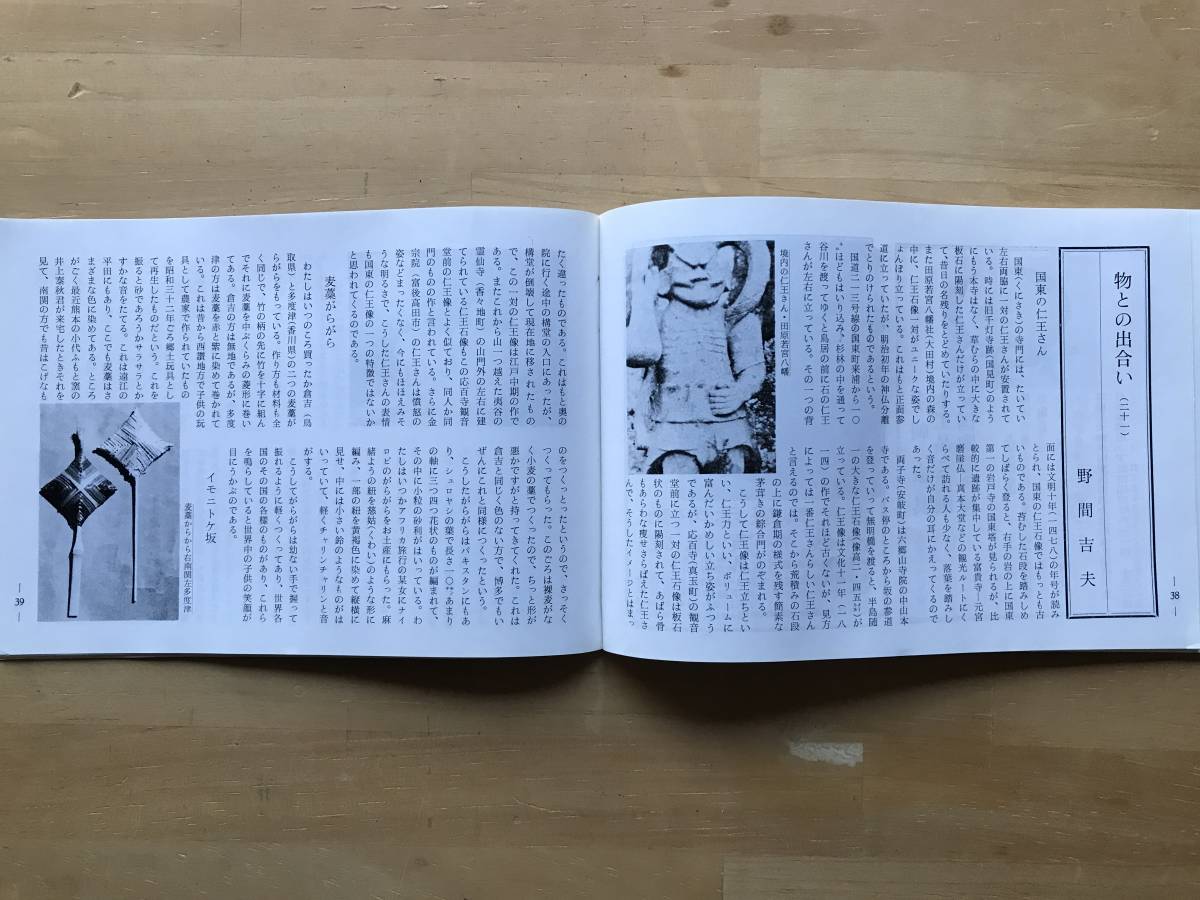 物との出合い (二十一)
野間吉夫
国東の仁王さん
国東(くにさき)の寺門には、たいてい
左右両脇に一対の仁王さんが安置されて
いる。時には旧千灯寺跡(国見町)のよう
にもう本寺はなく、草むらの中に大きな
板石に陽刻した仁王さんだけが立ってい
て、昔日の名残りをとどめていたりする。
また田原若宮八幡社(大田村)境内の森の
中に、仁王石像一対がユニークな姿でし
ょんぼり立っている。これはもと正面参
道に立っていたが、明治初年の神仏分離
でとりのけられたものであるという。
国道二一三号線の国東町来浦から一〇
㌔ほどもはいり込み、杉林の中を通って
谷川を渡ってゆくと鳥居の前に石の仁王
さんが左右に立っている。その一つの背
境内の仁王さん・田原若宮八幡
面には文明十年(一四七八)の年号が読み
とられ、国東の仁王石像ではもっとも古
いものである。苔むした石段を踏みしめ
てしばらく登ると、右手の岩の上に国東
第一の岩戸寺の国東塔が見られるが、比
較的に遺跡が集中している富貴寺―元宮
磨崖仏―真木大堂などの観光ルートにく
らべて訪れる人も少なく、落葉を踏みし
く音だけが自分の耳にかえってくるので
あった。
両子寺(安岐町)は六郷山寺院の中山本
寺である。バス停のところから坂の参道
を登っていって無明橋を渡ると、半島随
一の大きな仁王石像(像高二・四五㍍)が
立っている。仁王像は文化十一年(一八
一四)の作でそれほど古くないが、見方
によっては一番仁王さんらしい仁王さん
と言えるのでは。そこから荒積みの石段
の上に鎌倉期の様式を残す簡素な
茅茸きの綜合門がのぞまれる。
こうして仁王像は仁王立ちとい
い、仁王力といい、ボリュームに
富んだいかめしい立ち姿がふつう
であるが、応百寺(真玉町)の観音
堂前に立つ一対の仁王石像は板石
状のものに陽刻されて、あばら骨
もあらわな痩せさらばえた仁王さ
んで、そうしたイメージとはまっ
38
たく違ったものである。これはもと奥の
院に行く途中の構堂の入口にあったが、
構堂が倒壊して現在地に移されたもの
で、この一対の仁王像は江戸中期の作で
ある。まだこれから山一つ越えた夷谷の
霊仙寺(香々地町)の山門外の左右に建
てられている仁王石像もこの応百寺観音
堂前の仁王像とよく似ており、同人か同
門のものの作と言われている。さらに金
宗院(富後高田市)の仁王さんは憤怒の
姿などまったくなく、今にもほほえみそ
うな明るさで、こうした仁王さんの表情
も国東の仁王像の一つの特徴ではないか
と思われてくるのである。
麦藁がらがら
わたしはいつのころ買ったか倉吉(鳥
取県)と多度津(香川県)の二つの麦藁が
らがらをもっている。作り方も材料も全
く同じで、竹の柄の先に竹を十字に組ん
でそれに麦藁を中ぶくらみの菱形に巻い
てある。倉吉の方は無地であるが、多度
津の方は麦藁を赤と紫に染めて巻かれて
いる。これは昔から西讃地方で子供の玩
具として農家で作られていたもの
を昭和三十二年ごろ郷土玩具とし
て再生したものだという。これを
振ると砂であろうかサラサラとか
すかな音をたてる。これは遠江の
平田にもあり、ここでも麦藁はさ
まざまな色に染めてある。ところ
がごく最近熊本の小代ふもと窯の
井上泰秋君が来宅したときそれを
見て、南関の方でも昔はこげなも
のをつくっったというので、さっそく
つくってもらった。このごろは裸麦がな
く小麦の藁でつくったので、ちっと形が
悪かですがと持ってきてくれた。これは
倉吉と同じく色のない方で、博多でもい
ぜんにこれと同様につくったという。
こうしたがらがらはパキスタンにもあ
り、シュロヤシの葉で長さ一〇㌢あまり
の軸に三つ四つ花状のものが編まれて、
その中に小粒の砂利もはいっている。わ
たしはいつかアフリカ旅行の某女にナイ
ロビのがらがらをお土産にもらった。麻
緒ようの紐を慈姑(くわい)のような形に
編み、一部の紐を黄褐色に染めて縦横に
見せ、中には小さい鈴のようなものがは
いっていて、軽くチャリンチャリンと音
がする。
こうしてがらがらは幼ない手で握って
振れるように軽くつくってあり、世界各
国のその国の各様のものがあり、これら
を鳴らしていると世界中の子供の笑顔が
目にうかぶのである。
イモニトケ坂
麦藁からから右南関左多度津
39